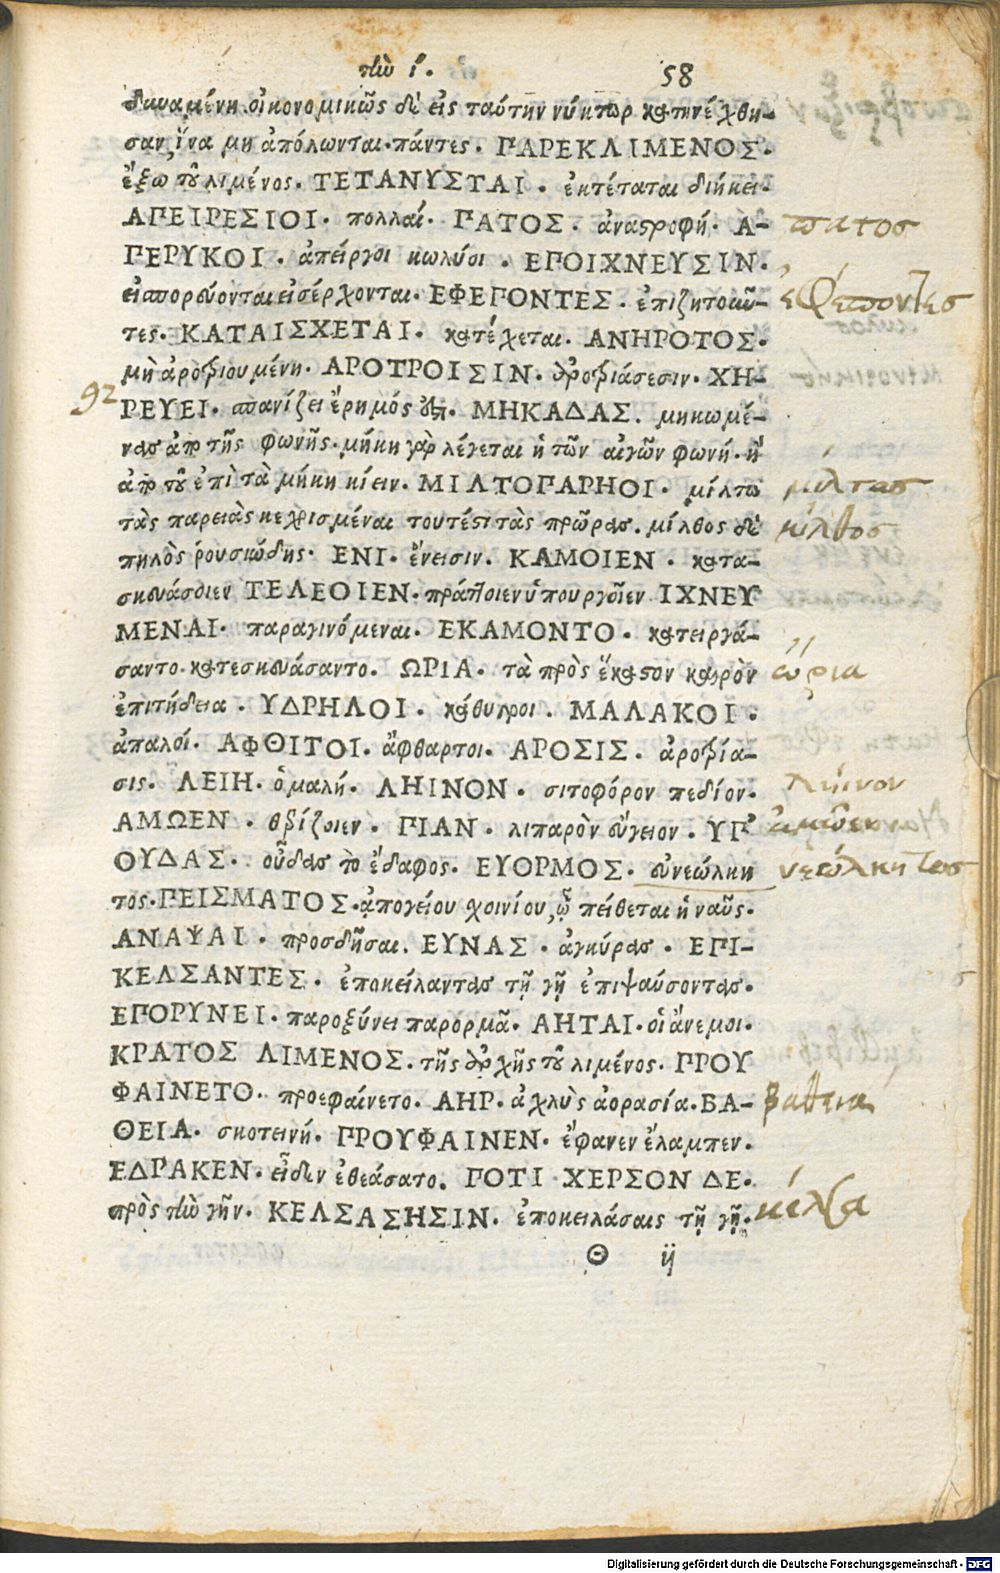 τὴν ἰ. 58
δυναμένη. οἰκονομικῶς δὲ εἰς ταύτην νύκτωρ κατηνέχθη-
σαν, ἵνα μὴ ἀπόλωνται πάντες. ΠΑΡΕΚΛΙΜΕΝΟΣ.
ἔξω τοῦ λιμένος. ΤΕΤΑΝΥΣΤΑΙ. ἐκτέταται διήκει.
ΑΠΕΙΡΕΣΙΟΙ. πολλαί. ΠΑΤΟΣ. ἀναστροφή. Α- πατοσ
ΠΕΡΥΚΟΙ. ἀπείργοι κωλύοι. ΕΠΟΙΧΝΕΥΣΙΝ.
εἰσπορεύονται εἰσέρχονται. ΕΦΕΠΟΝΤΕΣ. ἐπιζητοῦν- ἐφέποντες
τες. ΚΑΤΑΙΣΧΕΤΑΙ. κατέχεται. ΑΝΗΡΟΤΟΣ.
μὴ ἀροτριουμένη. ΑΡΟΤΡΟΙΣΙΝ. ἀροτριάσεσιν. ΧΗ-
92 ΡΕΥΕΙ. σπανίζει ἔρημός ἐστι. ΜΗΚΑΔΑΣ. μηκωμέ-
νας ἀπὸ τῆς φωνῆς. μήκη γὰρ λέγεται ἡ τῶν αἰγῶν φωνή. ἢ
ἀπὸ τοῦ ἐπὶ τὰ μήκη κίειν. ΜΙΛΤΟΠΑΡΗΟΙ. μίλτω μιλτοσ
τὰς παρειὰς κεχρισμέναι τουτέστι τὰς πρώρας. μίλθος δὲ μίλθοσ
πηλὸς ῥουσιώδης. ΕΝΙ. ἔνεισιν. ΚΑΜΟΙΕΝ. κατα-
σκευάσοιεν ΤΕΛΕΟΙΕΝ. πράττοιεν ὑπουργοῖεν ΙΧΝΕΥ
ΜΕΝΑΙ. παραγινόμεναι. ΕΚΑΜΟΝΤΟ. κατειργά-
σαντο. κατεσκευάσαντο. ΩΡΙΑ. τὰ πρὸς ἕκαστον καιρὸν ὥρια
ἐπιτήδεια. ΥΔΡΗΛΟΙ. κάθυγροι. ΜΑΛΑΚΟΙ.
ἁπαλοί. ΑΦΘΙΤΟΙ. ἄφθαρτοι. ΑΡΟΣΙΣ. ἀροτρία-
σις. ΛΕΙΗ. ὁμαλή. ΛΗΙΝΟΝ. σιτοφόρον πεδίον. λήινον
ΑΜΩΕΝ. θρίζοιεν. ΠΙΑΝ. λιπαρὸν εὔγειον. ΥΠ' ἀμῶεν
ΟΥΔΑΣ. οὖδας τὸ ἔδαφος. ΕΥΟΡΜΟΣ. εὐνεώλκη νεώλκητοσ
τος. ΠΕΙΣΜΑΤΟΣ. ἀπογείου χοινίου, ᾧ πείθεται ἡ ναῦς.
ΑΝΑΨΑΙ. προσδῆσαι. ΕΥΝΑΣ. ἀγκύρας. ΕΠΙ-
ΚΕΛΣΑΝΤΕΣ. ἐποκείλαντας τῇ γῇ ἐπιψαύσοντας.
ΕΠΟΡΥΝΕΙ. παροξύνει παρορμᾶ. ΑΗΤΑΙ. οἱ ἄνεμοι.
ΚΡΑΤΟΣ ΛΙΜΕΝΟΣ. τῆς ἀρχῆς τοῦ λιμένος. ΠΡΟΥ
ΦΑΙΝΕΤΟ. προεφαίνετο. ΑΗΡ. ἀχλὺς ἀορασία. ΒΑ- βαθεια
ΘΕΙΑ. σκοτεινή. ΠΡΟΥΦΑΙΝΕΝ. ἔφανεν ἔλαμπεν.
ΕΔΡΑΚΕΝ. εἶδεν ἐθεάσατο. ΠΟΤΙ ΧΕΡΣΟΝ ΔΕ.
πρὸς τὴν γῆν. ΚΕΛΣΑΣΗΣΙΝ. ἐποκειλάσαις τῇ γῇ. κέλσα
Θ ij
Digitalisierung gefördert durch die Deutsche Forschungsgemeinschaft - DFG